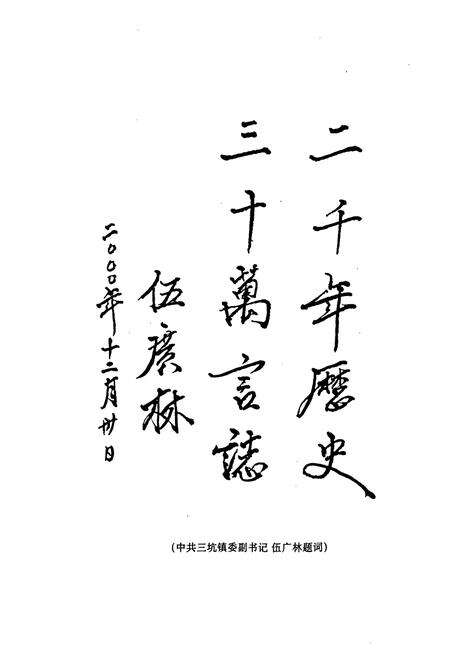 二千年歷史
三十萬言誌
伍廣林
二〇〇〇年十二月卅日
(中共三坑镇委副书记 伍广林题词)